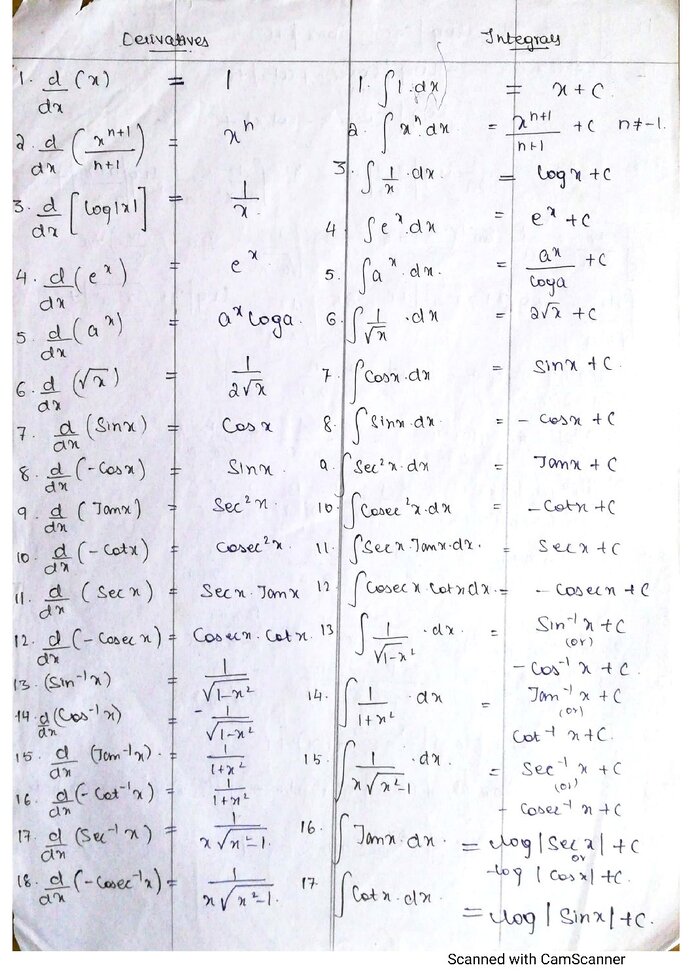 Derivatives
1. d/dx (x) = 1
2. d/dx (x^(n+1)/(n+1)) = x^n
3. d/dx [log|x|] = 1/x.
4. d/dx (e^x) = e^x
5. d/dx (a^x) = a^x loga.
6. d/dx (√x) = 1/(2√x)
7. d/dx (Sinx) = Cosx
8. d/dx (-Cosx) = Sinx.
9. d/dx (Tanx) = Sec²x.
10. d/dx (-Cotx) = Cosec²x.
11. d/dx (Secx) = Secx. Tanx
12. d/dx (-Cosecx) = Cosecx. Cotx.
13. (Sin⁻¹x) = 1/√(1-x²)
14. d/dx (Cos⁻¹x) = -1/√(1-x²)
15. d/dx (Tan⁻¹x). = 1/(1+x²)
16. d/dx (-Cot⁻¹x) = 1/(1+x²)
17. d/dx (Sec⁻¹x) = 1/(x√(x²-1).
18. d/dx (-Cosec⁻¹x) = 1/(x√(x²-1).
Integrals
1. ∫1.dx = x+C.
2. ∫x^n.dx = x^(n+1)/(n+1) +C n≠-1.
3. ∫1/x .dx = logx+C
4 ∫e^x.dx = e^x+C
5. ∫a^x.dx. = a^x/loga +C
6. ∫1/√x .dx = 2√x +C
7. ∫Cosx.dx = Sinx+C.
8. ∫Sinx.dx = -Cosx+C
9. ∫Sec²x.dx = Tanx+C
10. ∫Cosec²x.dx = -Cotx+C
11. ∫Secx.Tanx.dx. = Secx+C
12 ∫Cosecx Cotxdx. = -Cosecx+C
13 ∫1/√(1-x²) .dx. = Sin⁻¹x+C
(or)
-Cos⁻¹x+C.
14. ∫1/(1+x²) .dx = Tan⁻¹x+C
(or)
Cot⁻¹x+C.
15. ∫1/(x√(x²-1)) .dx = Sec⁻¹x+C
(or)
-Cosec⁻¹x+C
16. ∫Tanx.dx. = log|Secx|+C
or
-log|Cosx|+C.
17. ∫Cotx.dx = log|Sinx|+C.
Scanned with CamScanner